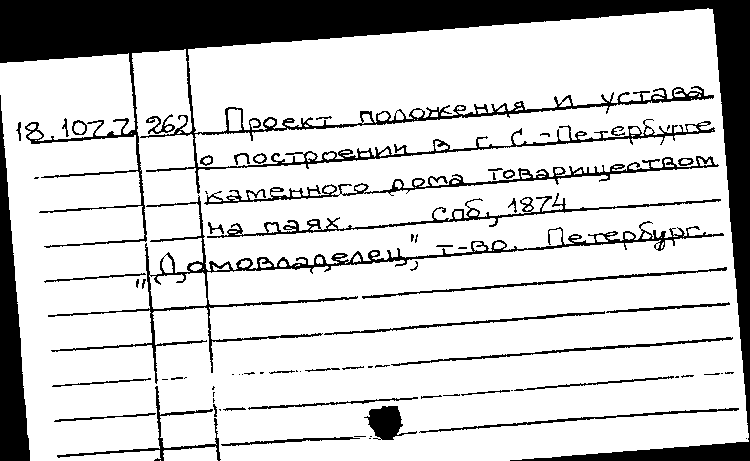 18.107.7.262 Проект положения и устава
о построении в г. С.-Петербурге
каменного дома товариществом
на паях. Спб., 1874.
„Домовладелец", т-во. Петербург.